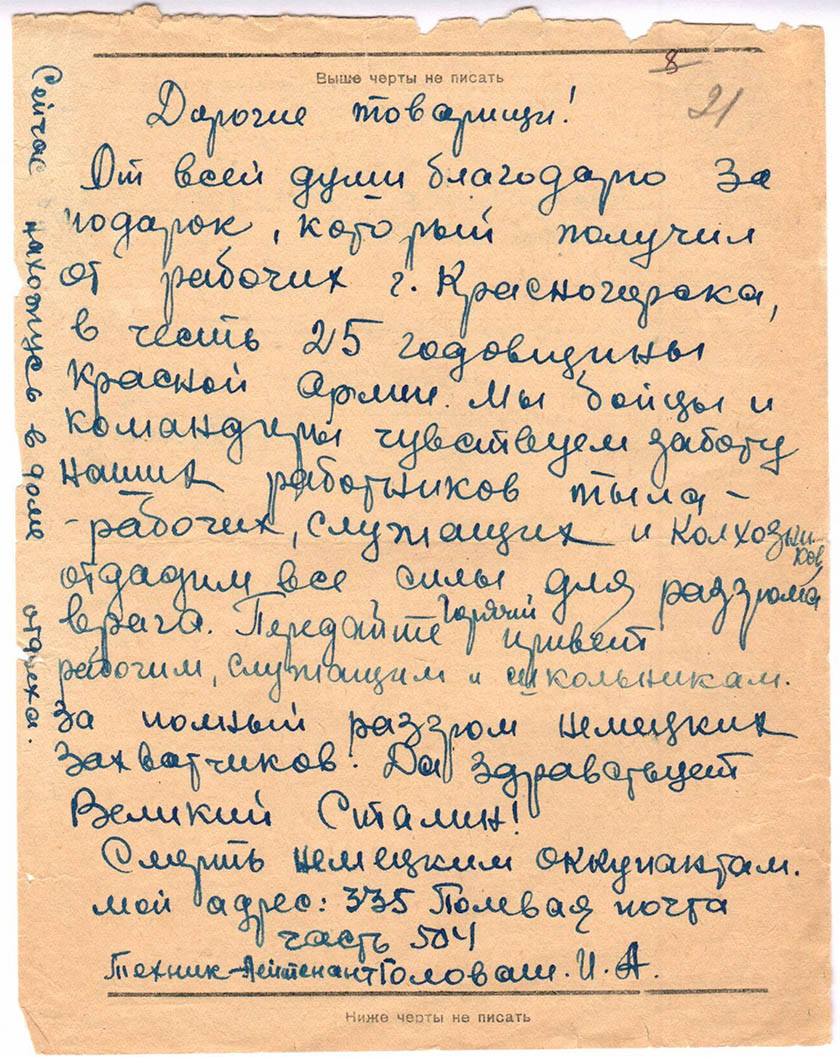 Выше черты не писать
8
21
Дорогие товарищи!
От всей души благодарю за
подарок, который получил
от рабочих г. Красногорска,
в честь 25 годовщины
Красной Армии. Мы бойцы и
командиры чувствуем заботу
наших работников тыла -
- рабочих, служащих и колхозни-
ков,
отдадим все силы для раззрома
врага. Передайте горячий привет
рабочим, служащим и школьникам.
За полный раззром немецких
захватчиков. Да здравствует
Великий Сталин!
Смерть немецким оккупантам.
мой адрес: 335 Полевая почта
часть 504
Техник-лейтенант Головаш. И. А.
Ниже черты не писать
Сейчас нахожусь в доме отдыха.